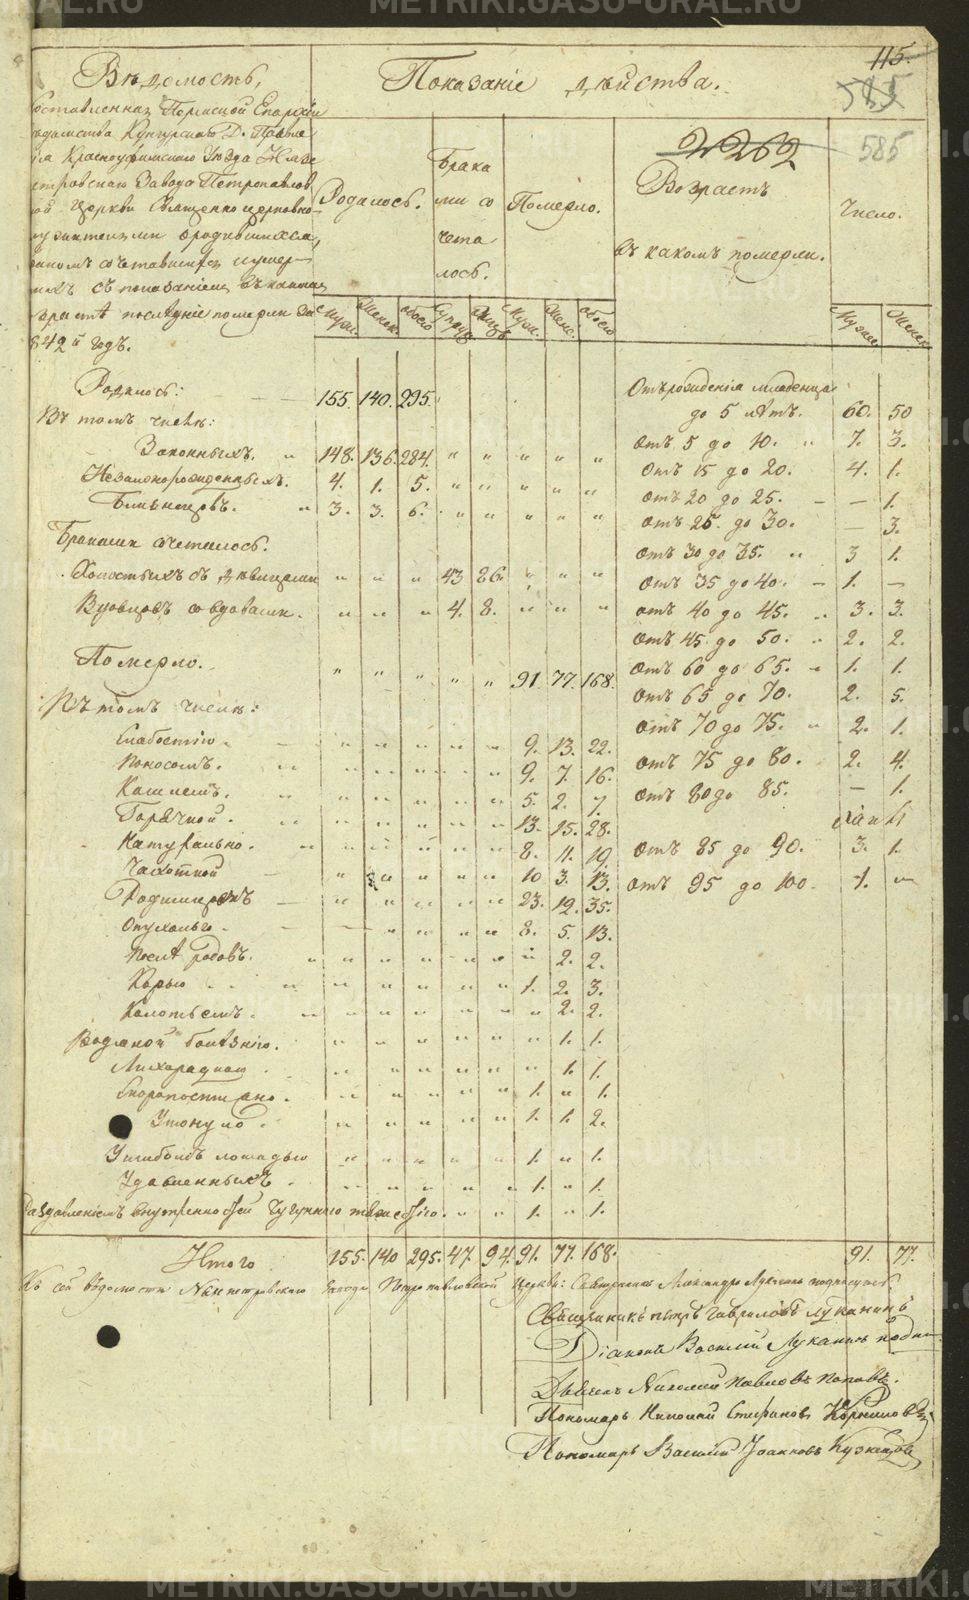 115.
585
Вѣдомость,
Показаніе дѣйства.
оставленная Пермской Епархіи
вѣдомства Кунгурскаго Д. Правле
ія Красноуфимскаго Уѣзда Нязе
етровскаго Завода Петропавлов
ой Церкви Священно церковно
ниномъ сочетавшихся и умер
шихъ съ показаніемъ въ каких
возрастѣ послѣдніе померли за
842й годъ.
Родилось.
Брака
ми со
чета
лось.
Померло.
2262
Возрастъ
въ какомъ померли.
585
Число.
Муж. Женск. обоего Супруж. Лицъ Муж. Женс. обоего
Мужеск Женск
Родилось: 155. 140. 295.
Въ томъ числѣ:
Законныхъ. " 148. 136. 284. " " " " "
Незаконорожденныхъ. 4. 1. 5. " " " " "
Близнецовъ. " 3. 3. 6. " " " " "
Браками сочеталось.
Холостыхъ съ дѣвицами " " " 43 86. " " "
Вдовцовъ со вдовами. " " " 4. 8. " " "
Померло. " " " " " 91. 77. 168.
Въ томъ числѣ:
Слабостію. — " " " " " 9. 13. 22.
Поносомъ. " " " " " " 9. 7. 16.
Кашлемъ. " " " " " " 5. 2. 7.
Горячкой. " " " " " " 13. 15. 28.
Натурально. " " " " " " 8. 11. 19.
Чахоткой — " " " " " 10 3. 13.
Родимцомъ — " " " " " 23. 12. 35.
Опухолью. — — " " " " 8. 5. 13.
Послѣ родовъ. " " " " " " " 2. 2.
Корью " " " " " " 1. 2. 3.
Колотьемъ. " " " " " " " 2. 2.
Водяной болѣзнію. " " " " " " 1. 1.
Лихорадкою " " " " " " 1. 1.
Скоропостижно. " " " " " 1. " 1.
Утонуло. " " " " " 1. 1. 2.
Ушибомъ лошадью " " " " " 1. " 1.
Удавленныхъ. " " " " " 1. " 1.
Раздавленіемъ внутренностей чугунного тяжестію. " " 1. " 1.
Отъ рожденія младенца
до 5 лѣтъ. 60. 50
Отъ 5 до 10. " 7. 3.
Отъ 15 до 20. 4. 1.
Отъ 20 до 25. — — 1.
Отъ 25. до 30. — 3.
Отъ 30 до 35. " 3 1.
Отъ 35 до 40. — 1. —
Отъ 40 до 45. " 3. 3.
Отъ 45 до 50. " 2. 2.
Отъ 60 до 65. " 1. 1.
Отъ 65 до 70. 2. 5.
Отъ 70 до 75. " 2. 1.
Отъ 75 до 80. 2. 4.
Отъ 80 до 85. — 1.
Отъ 85 до 90. 3. 1.
Отъ 95 до 100. 1. —
Итого 155. 140 295. 47. 94. 91. 77. 168. 91. 77.
Къ сей вѣдомости Нязепетровскаго Завода Петропавловской Церкви: Священникъ Александръ подписуюсь.
Священникъ Петръ Гавриловъ Луканинъ
Діаконъ Василій Луканинъ подпи
Дьячекъ Николай Павловъ Поповъ.
Пономарь Николай Стефановъ Корниловъ
Пономарь Василій Іоанновъ Кузнецовъ
METRIKI.GASU-URAL.RU